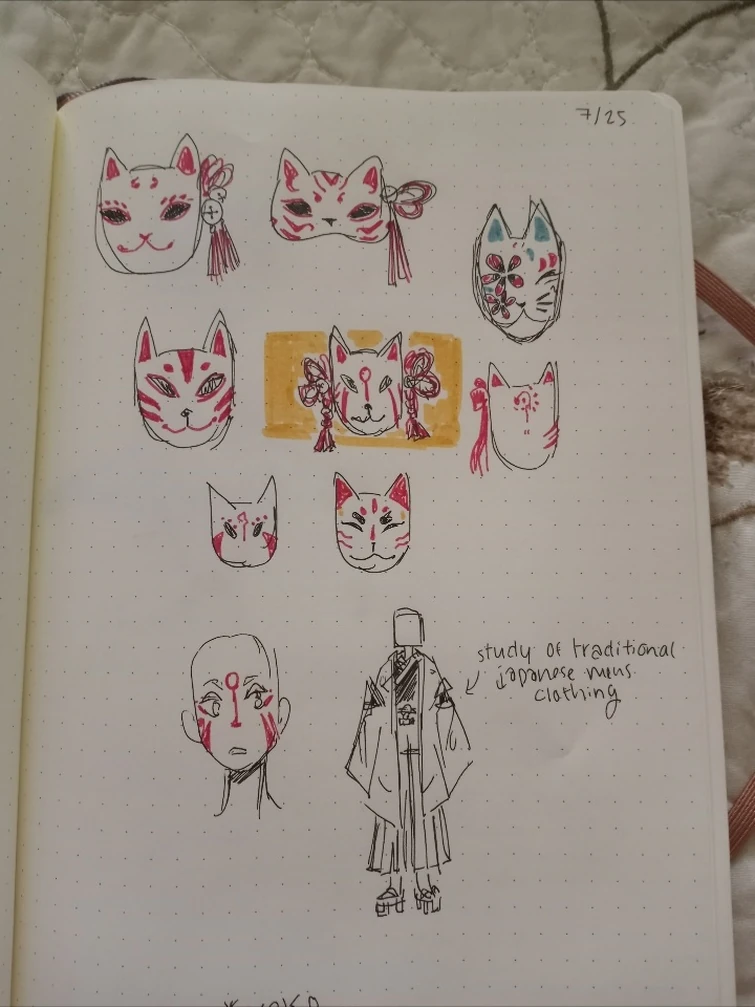 7/25
study of traditional
japanese mens
clothing